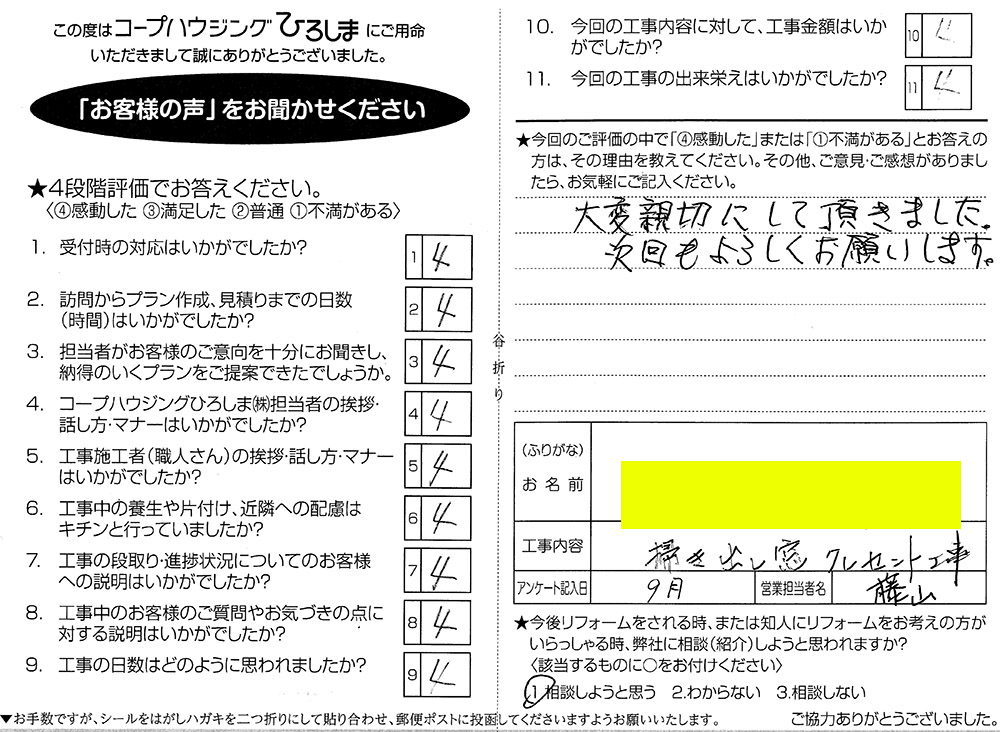 この度はコープハウジングひろしまにご用命
いただきまして誠にありがとうございました。
「お客様の声」をお聞かせください
★4段階評価でお答えください。
〈④感動した ③満足した ②普通 ①不満がある〉
1. 受付時の対応はいかがでしたか?
1 4
2. 訪問からプラン作成、見積りまでの日数
（時間）はいかがでしたか?
2 4
3. 担当者がお客様のご意向を十分にお聞きし、
納得のいくプランをご提案できたでしょうか。
3 4
4. コープハウジングひろしま㈱担当者の挨拶・
話し方・マナーはいかがでしたか?
4 4
5. 工事施工者（職人さん）の挨拶・話し方・マナー
はいかがでしたか?
5 4
6. 工事中の養生や片付け、近隣への配慮は
キチンと行っていましたか?
6 4
7. 工事の段取り・進捗状況についてのお客様
への説明はいかがでしたか?
7 4
8. 工事中のお客様のご質問やお気づきの点に
対する説明はいかがでしたか?
8 4
9. 工事の日数はどのように思われましたか?
9 4
谷折り
10. 今回の工事内容に対して、工事金額はいか
がでしたか?
10 4
11. 今回の工事の出来栄えはいかがでしたか?
11 4
★今回のご評価の中で「④感動した」または「①不満がある」とお答えの
方は、その理由を教えてください。その他、ご意見・ご感想がありまし
たら、お気軽にご記入ください。
大変親切にして頂きました。
次回もよろしくお願いします。
（ふりがな）
お名前
工事内容 掃き出し窓 クレセント工事
アンケート記入日 9月 営業担当者名 藤山
★今後リフォームをされる時、または知人にリフォームをお考えの方が
いらっしゃる時、弊社に相談（紹介）しようと思われますか?
〈該当するものに○をお付けください〉
1.相談しようと思う 2.わからない 3.相談しない
▼お手数ですが、シールをはがしハガキを二つ折りにして貼り合わせ、郵便ポストに投函してくださいますようお願いいたします。
ご協力ありがとうございました。